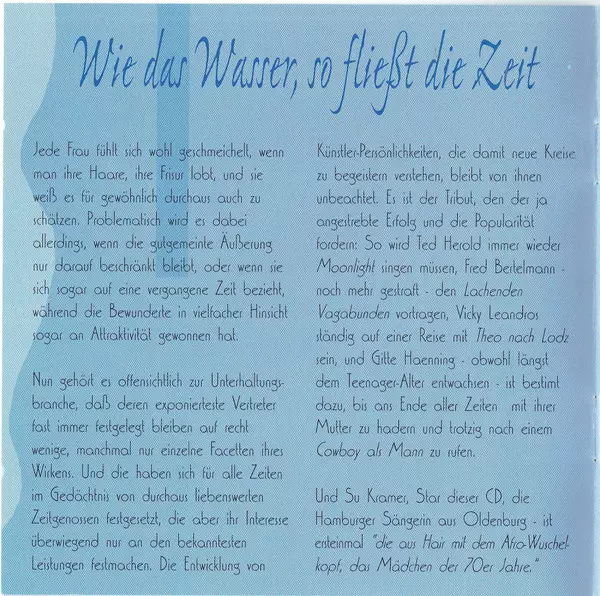 Wie das Wasser, so fließt die Zeit
Jede Frau fühlt sich wohl geschmeichelt, wenn
man ihre Haare, ihre Frisur lobt, und sie
weiß es für gewöhnlich durchaus auch zu
schätzen. Problematisch wird es dabei
allerdings, wenn die gutgemeinte Äußerung
nur darauf beschränkt bleibt, oder wenn sie
sich sogar auf eine vergangene Zeit bezieht,
während die Bewunderte in vielfacher Hinsicht
sogar an Attraktivität gewonnen hat.
Nun gehört es offensichtlich zur Unterhaltungs-
branche, daß deren exponierteste Vertreter
fast immer festgelegt bleiben auf recht
wenige, manchmal nur einzelne Facetten ihres
Wirkens. Und die haben sich für alle Zeiten
im Gedächtnis von durchaus liebenswerten
Zeitgenossen festgesetzt, die aber ihr Interesse
überwiegend nur an den bekanntesten
Leistungen festmachen. Die Entwicklung von
Künstler-Persönlichkeiten, die damit neue Kreise
zu begeistern verstehen, bleibt von ihnen
unbeachtet. Es ist der Tribut, den der ja
angestrebte Erfolg und die Popularität
fordern: So wird Ted Herold immer wieder
Moonlight singen müssen, Fred Bertelmann -
noch mehr gestraft - den Lachenden
Vagabunden vortragen, Vicky Leandros
ständig auf einer Reise mit Theo nach Lodz
sein, und Gitte Haenning - obwohl längst
dem Teenager-Alter entwachsen - ist bestimmt
dazu, bis ans Ende aller Zeiten mit ihrer
Mutter zu hadern und trotzig nach einem
Cowboy als Mann zu rufen.
Und Su Kramer, Star dieser CD, die
Hamburger Sängerin aus Oldenburg - ist
ersteinmal "die aus Hair mit dem Afro-Wuschel-
kopf, das Mädchen der 70er Jahre."